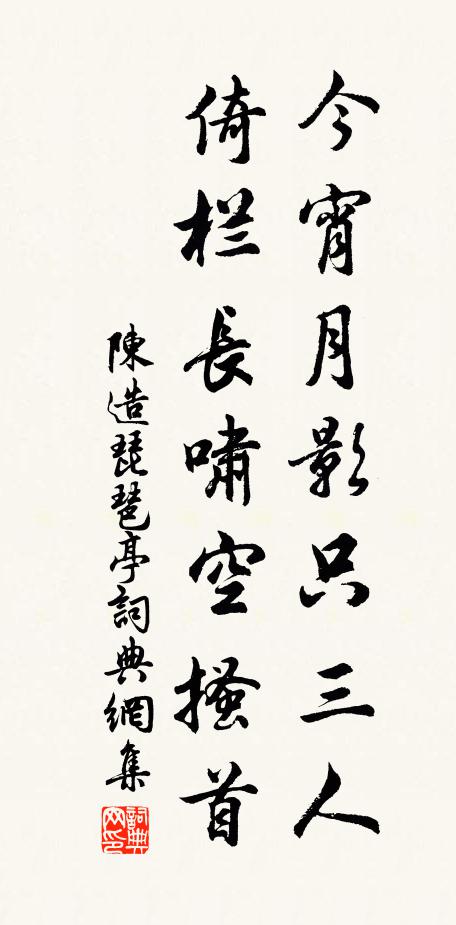 今宵月影只三人
倚栏長嘯空搔首
陳造琵琶亭詞典網集
詞典网印